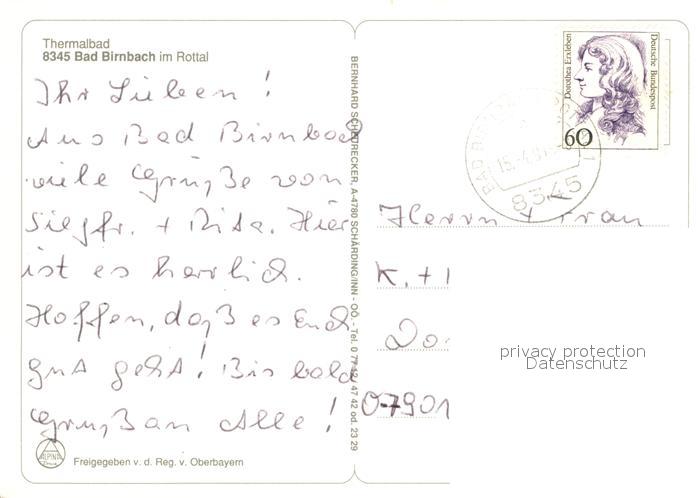 Thermalbad
8345 Bad Birnbach im Rottal
Ihr Lieben!
Aus Bad Birnbach
viele Grüße von
Siegfr. + Rita. Hier
ist es herrlich.
Hoffen, daß es Euch
gut geht! Bis bald
Gruß an Alle!
Freigegeben v. d. Reg. v. Oberbayern
ALPINA
BERNHARD SCHATRECKER, A-4780 SCHÄRDING/INN - OÖ. - Tel. 0 77 12 / 47 42 od. 23 29
Dorothea Erxleben
Deutsche Bundespost
60
BAD BIRNBACH
8345
Herrn + Frau
K. +
Do
07901
privacy protection
Datenschutz